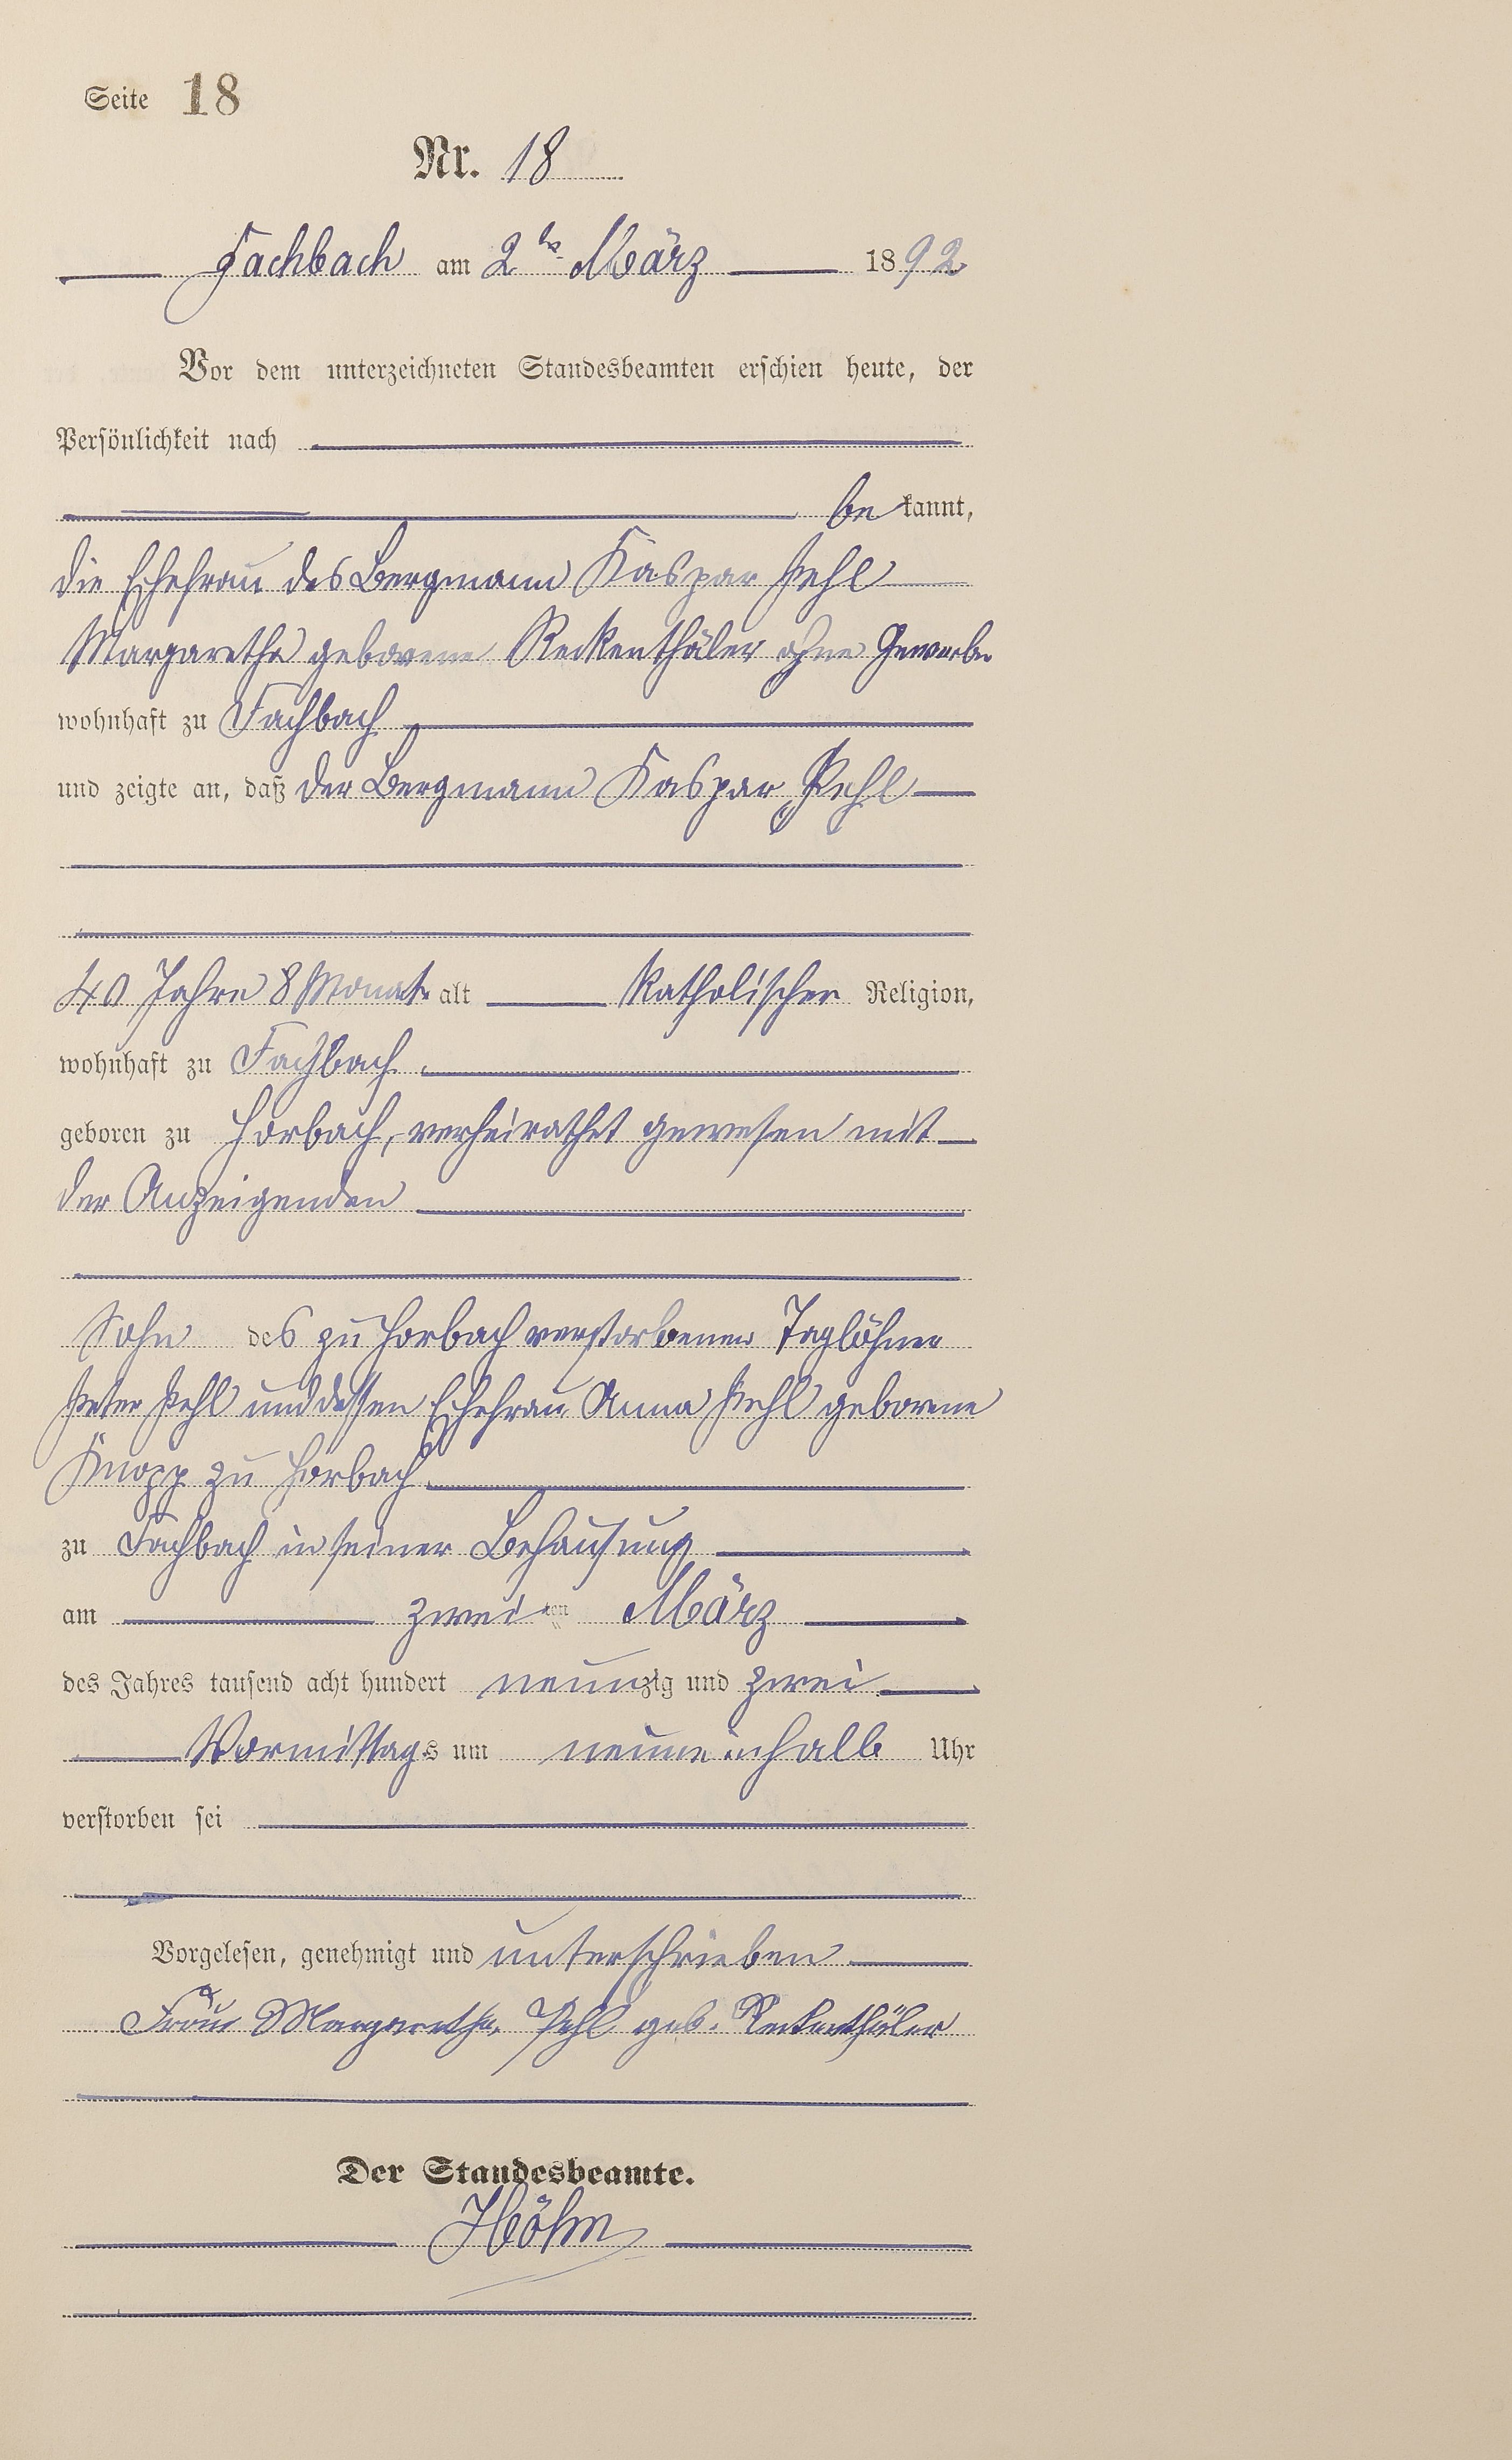 Seite 18
Nr. 18
Fachbach am 2ten März 1892
Vor dem unterzeichneten Standesbeamten erschien heute, der
Persönlichkeit nach
bekannt,
die Ehefrau des Bergmann Kaspar Pehl
Margaretha geborene Reckenthäler ohne Gewerbe
wohnhaft zu Fachbach
und zeigte an, daß der Bergmann Kaspar Pehl
40 Jahre 8 Monate alt katholischer Religion,
wohnhaft zu Fachbach
geboren zu Horbach, verheirathet gewesen mit
der Anzeigenden
Sohn des zu Horbach verstorbenen Taglöhner
Peter Pehl und dessen Ehefrau Anna Pehl geborene
Knopp zu Horbach
zu Fachbach in seiner Behausung
am zweiten März
des Jahres tausend acht hundert neunzig und zwei
Vormittags um neuneinhalb Uhr
verstorben sei
Vorgelesen, genehmigt und unterschrieben
Frau Margaretha Pehl geb. Reckenthäler
Der Standesbeamte.